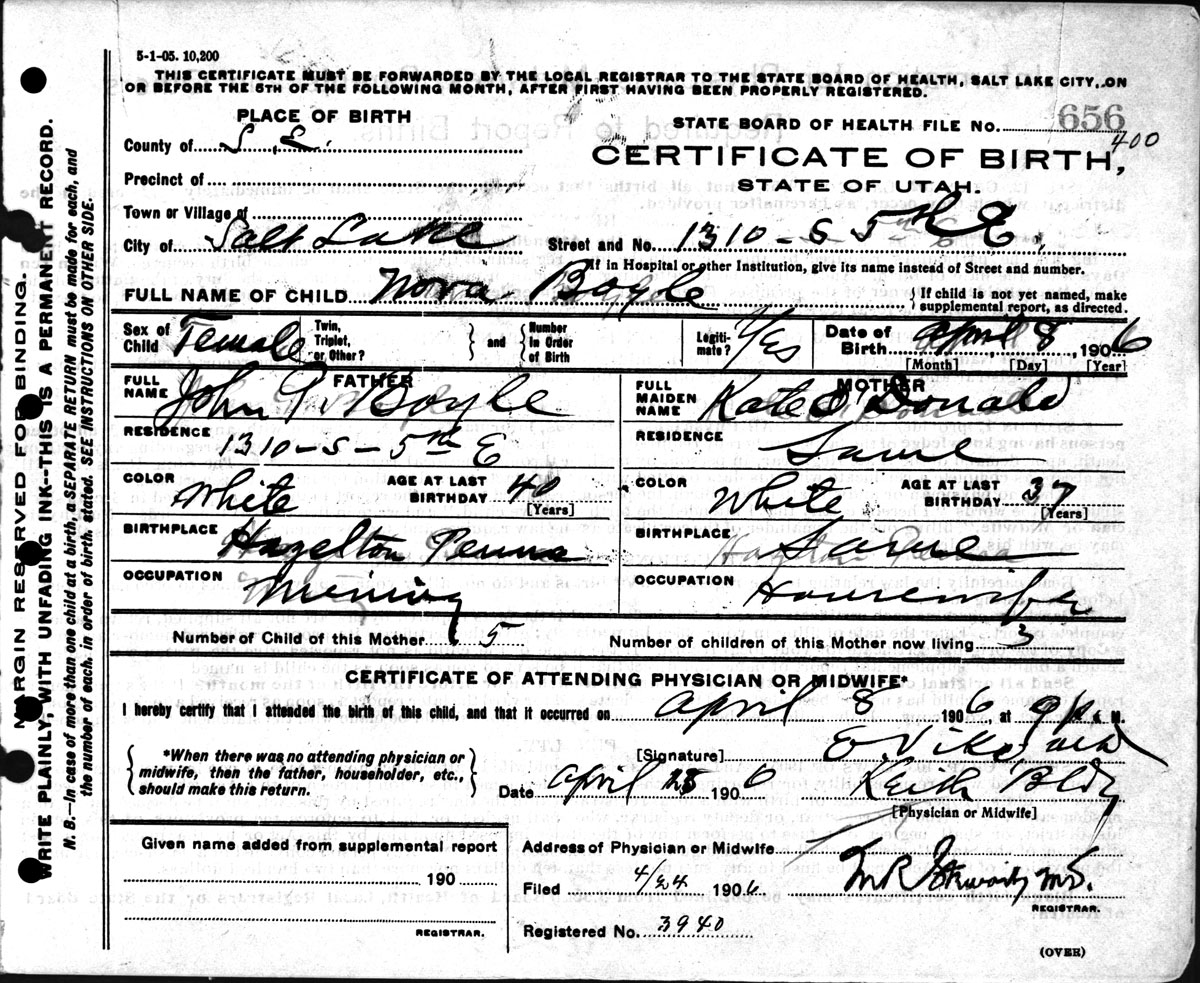 5-1-05. 10,200
THIS CERTIFICATE MUST BE FORWARDED BY THE LOCAL REGISTRAR TO THE STATE BOARD OF HEALTH, SALT LAKE CITY, ON
OR BEFORE THE 5TH OF THE FOLLOWING MONTH, AFTER FIRST HAVING BEEN PROPERLY REGISTERED.
MARGIN RESERVED FOR BINDING.
WRITE PLAINLY, WITH UNFADING INK--THIS IS A PERMANENT RECORD.
N. B.--In case of more than one child at a birth, a SEPARATE RETURN must be made for each, and
the number of each, in order of birth, stated. SEE INSTRUCTIONS ON OTHER SIDE.
PLACE OF BIRTH
STATE BOARD OF HEALTH FILE NO. 656
400
County of S. L.
CERTIFICATE OF BIRTH,
Precinct of
STATE OF UTAH.
Town or Village of
City of Salt Lake Street and No. 1310-S 5th E.
If in Hospital or other Institution, give its name instead of Street and number.
FULL NAME OF CHILD Nora Boyle { If child is not yet named, make
supplemental report, as directed.
Sex of Child Female Twin, Triplet, or Other? } and { Number in Order of Birth Legitimate? Yes Date of Birth April 8, 1906
[Month] [Day] [Year]
FATHER
FULL NAME John Boyle
MOTHER
FULL MAIDEN NAME Kate O'Donald
RESIDENCE 1310-S-5th E
RESIDENCE Same
COLOR White AGE AT LAST BIRTHDAY 40 [Years]
COLOR White AGE AT LAST BIRTHDAY 37 [Years]
BIRTHPLACE Hazelton Penna
BIRTHPLACE Same
OCCUPATION Mining
OCCUPATION Housewife
Number of Child of this Mother 5 Number of children of this Mother now living 3
CERTIFICATE OF ATTENDING PHYSICIAN OR MIDWIFE*
I hereby certify that I attended the birth of this child, and that it occurred on April 8 1906 at 9 P. M.
{ *When there was no attending physician or
midwife, then the father, householder, etc.,
should make this return. }
[Signature]
Date April 1906 Keith Bldg
[Physician or Midwife]
Given name added from supplemental report
190
REGISTRAR.
Address of Physician or Midwife
Filed 4/24 1906
REGISTRAR.
Registered No. 3940
(OVER)